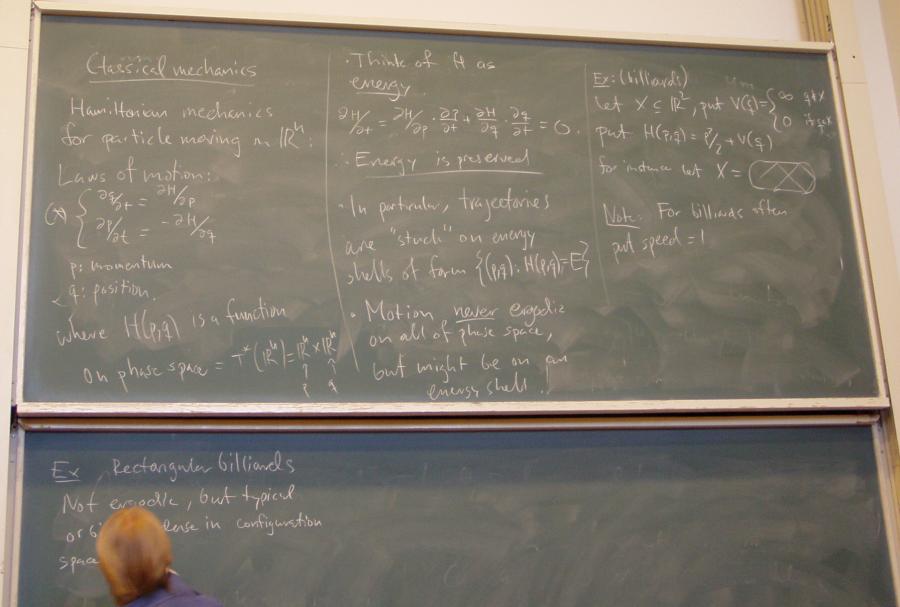 Classical mechanics
Hamiltonian mechanics
for particle moving in ℝⁿ:
Laws of motion:
(*) { ∂q/∂t = ∂H/∂p
∂p/∂t = -∂H/∂q
p: momentum
q: position.
where H(p,q) is a function
on phase space = T*(ℝⁿ) = ℝⁿ × ℝⁿ
↑ ↑
p q
· Think of H as
energy.
∂H/∂t = ∂H/∂p · ∂p/∂t + ∂H/∂q · ∂q/∂t = 0.
∴ Energy is preserved
· In particular, trajectories
are "stuck" on energy
shells of form {(p,q): H(p,q)=E}
· Motion never ergodic
on all of phase space,
but might be on an
energy shell.
Ex: (billiards)
let X ⊆ ℝ², put V(q) = { ∞ q∉X
0 if q∈X
put H(p,q) = p²/2 + V(q)
for instance let X =
Note: For billiards often
put speed = 1
Ex Rectangular billiards
Not ergodic, but typical
in configuration
space